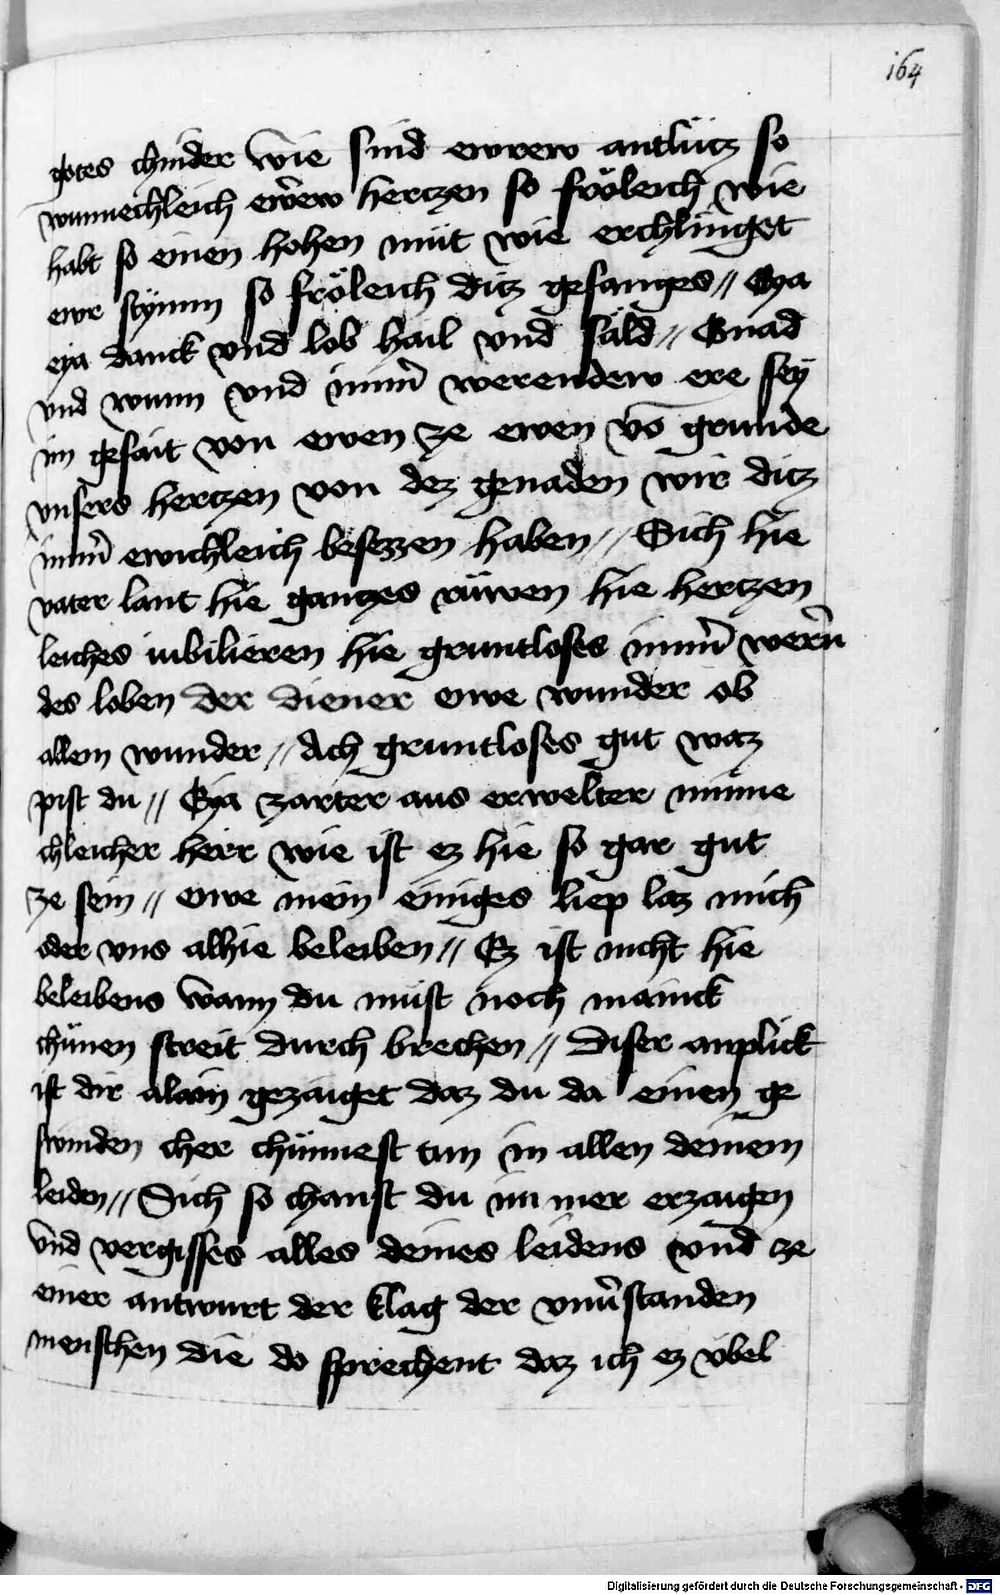 164
gotes chinder wie sind ewrew antlütz so
wunnechleich ewrew hertzen so fröleich wie
habt so einen hohen müt wie erchlinget
ewr stÿmm so fröleich ditz gesanges // Eya
eya danck vnd lob hail vnd säld // Gnad
vnd wunn vnd imm̄ werendew ere seÿ
im gesait von ewen ze ewen vō grunde
vnsers hertzen von dez genaden wir ditz
imm̄ ewichleich besezzen haben // Sich hie
vater lant hie gantzes rüwen hie hertzen
leiches iubilieren hie gruntloses imm̄ wern̄
des loben der diener owe wunder ob
allem wunder // Ach gruntloses gut waz
pist du // Eya zarter aus erwelter minne
chleicher herr wie ist ez hie so gar gut
ze sein // owe mein einiges liep laz mich
oder vns alhie beleiben // Ez ist nicht hie
beleibens wann du müst noch mainck
chünen streit durch brechen // Diser anplick
ist dir alain gezaiget daz du da einen ge
swinden cher chünnest tun in allen deinem
leiden // Sich so chanst du nim mer erzaigen
vnd vergisses alles deines leidens vnd ze
einer antwurt der klag der vnu̅standen
menschen die do sprechent daz ich ez vbel
Digitalisierung gefördert durch die Deutsche Forschungsgemeinschaft - DFG